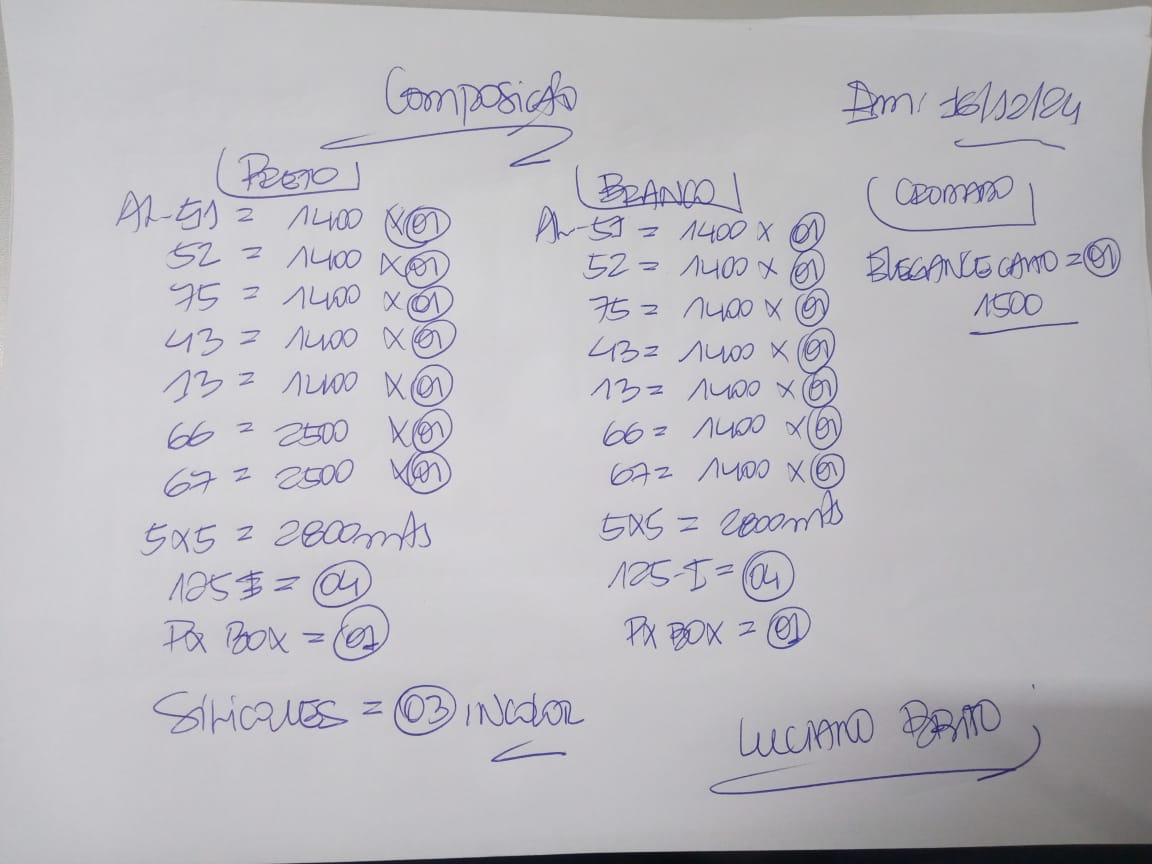 Composição
Em: 16/12/24
PRETO
AL-51 = 1400 x 01
52 = 1400 x 01
75 = 1400 x 01
43 = 1400 x 01
13 = 1400 x 01
66 = 2500 x 01
67 = 2500 x 01
5x5 = 2800mts
125 I = 04
Px BOX = 01
BRANCO
AL-51 = 1400 x 01
52 = 1400 x 01
75 = 1400 x 01
43 = 1400 x 01
13 = 1400 x 01
66 = 1400 x 01
67 = 1400 x 01
5x5 = 2800mts
125-I = 04
Px BOX = 01
CROMADO
ELEGANCE CANTO = 01
1500
SILICONES = 03 INCOLOR
LUCIANO BRITO